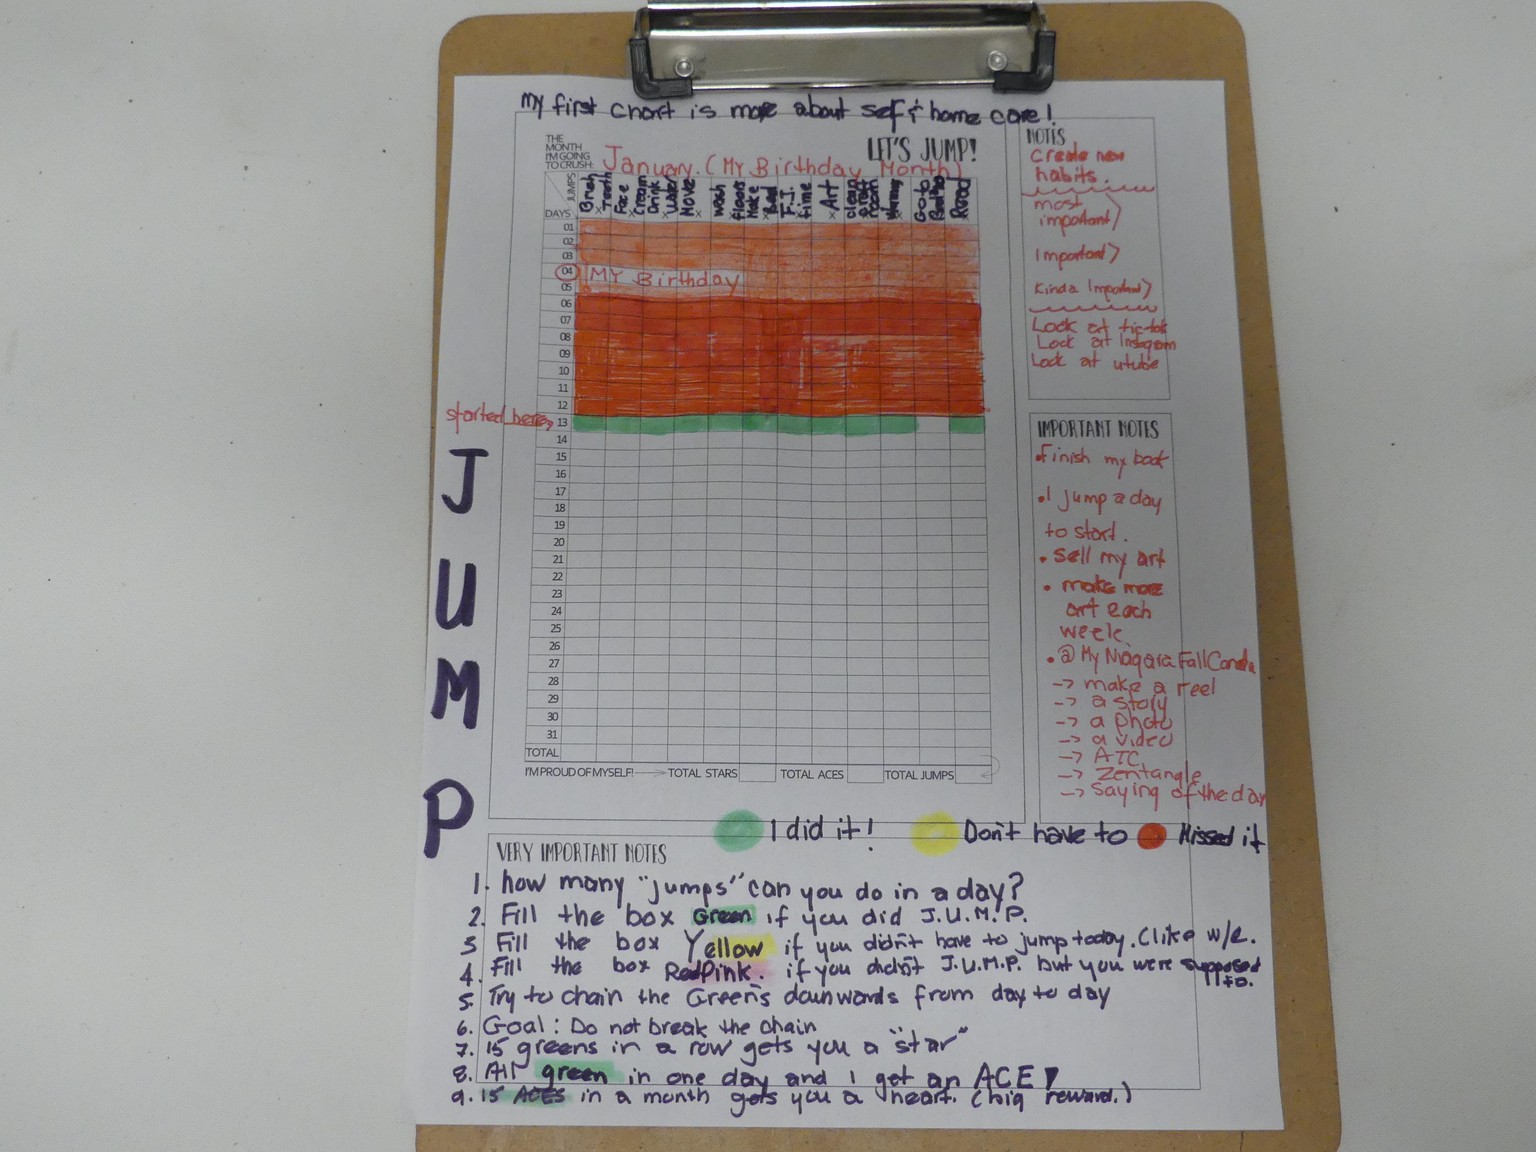 My first chart is more about self & home care!
THE
MONTH
I'M GOING
TO CRUSH:
LET'S JUMP!
January. (My Birthday Month)
JUMPS
DAYS
Brush Teeth
Face Cream
Drink Water
Move
wash floors
Make Bed
F.J. time
Art
clean craft room
Go to Bed
Read
01
02
03
04 MY Birthday
05
06
07
08
09
10
11
12
started here 13
14
15
16
17
18
19
20
21
22
23
24
25
26
27
28
29
30
31
TOTAL
I'M PROUD OF MYSELF! TOTAL STARS TOTAL ACES TOTAL JUMPS
J
U
M
P
NOTES
Create new
habits.
most
important
Important
Kinda Important
Look at tic-tok
Look at Instagram
Look at utube
IMPORTANT NOTES
• Finish my book
• 1 jump a day
to start.
• sell my art
• make more
art each
week.
• @MyNiagaraFallCanda
-> make a reel
-> a story
-> a photo
-> a video
-> ATC
-> Zentangle
-> Saying of the day
I did it! Don't have to Missed it
VERY IMPORTANT NOTES
1. how many "jumps" can you do in a day?
2. Fill the box Green if you did J.U.M.P.
3 Fill the box Yellow if you didn't have to jump today. (like w/e.
4. Fill the box RedPink. if you didn't J.U.M.P. but you were supposed to.
5. Try to chain the Greens downwards from day to day
6. Goal: Do not break the chain
7. 15 greens in a row gets you a "star"
8. All green in one day and I get an ACE!
9. 15 ACES in a month gets you a heart. (big reward.)